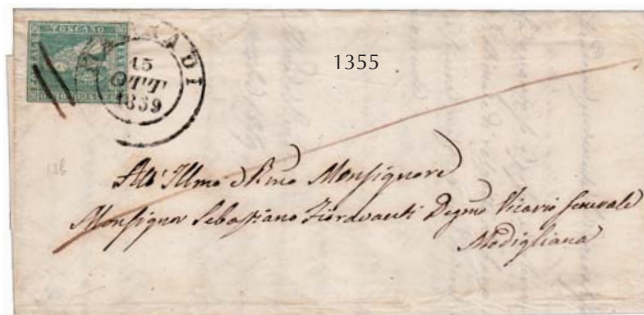 TOSCANO
MARRADI
15
OTT
1859
1355
All' Illmo e Rmo Monsignore
Monsignor Sebastiano Fioravanti Degmo Vicario Generale
Modigliana